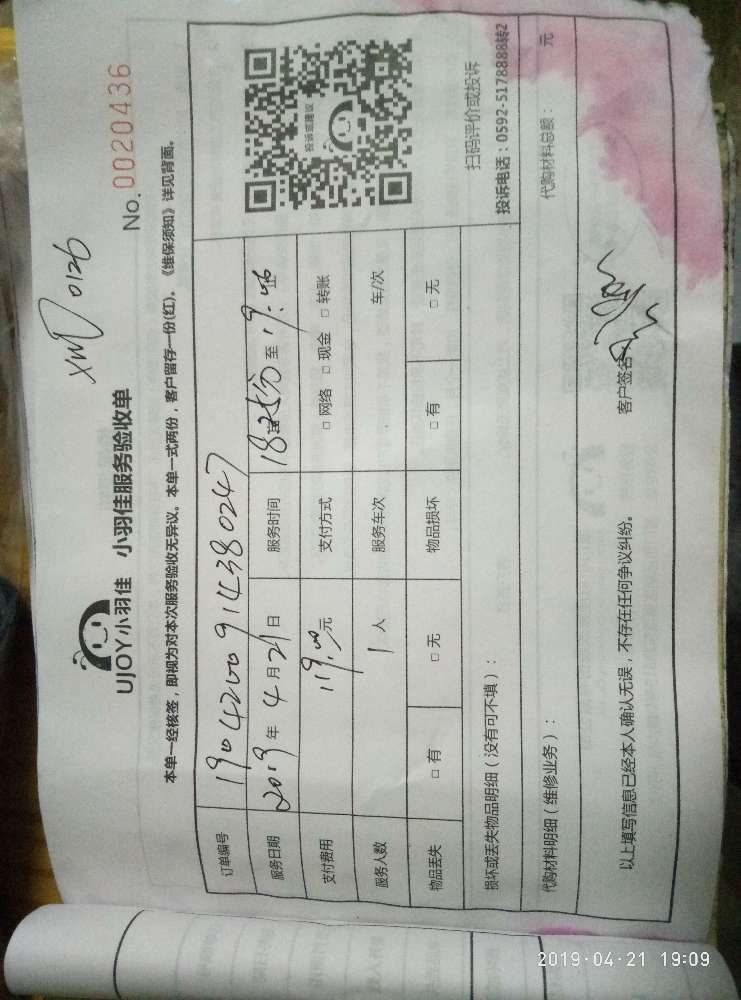 XM 0126
No. 0020436
UJOY小羽佳 小羽佳服务验收单
本单一经核签，即视为对本次服务验收无异议。本单一式两份，客户留存一份(红)。《维保须知》详见背面。
订单编号 1904200914380247
服务日期 2019年4月21日 服务时间 至
支付费用 119.00元 支付方式 □ 网络 □ 现金 □ 转账
服务人数 1人 服务车次 车/次
物品丢失 □ 有 □ 无 物品损坏 □ 有 □ 无
投诉或建议
扫码评价或投诉
投诉电话：0592-5178888转2
损坏或丢失物品明细（没有可不填）：
代购材料明细（维修业务）： 代购材料总额： 元
以上填写信息已经本人确认无误，不存在任何争议纠纷。 客户签名
2019-04-21 19:09